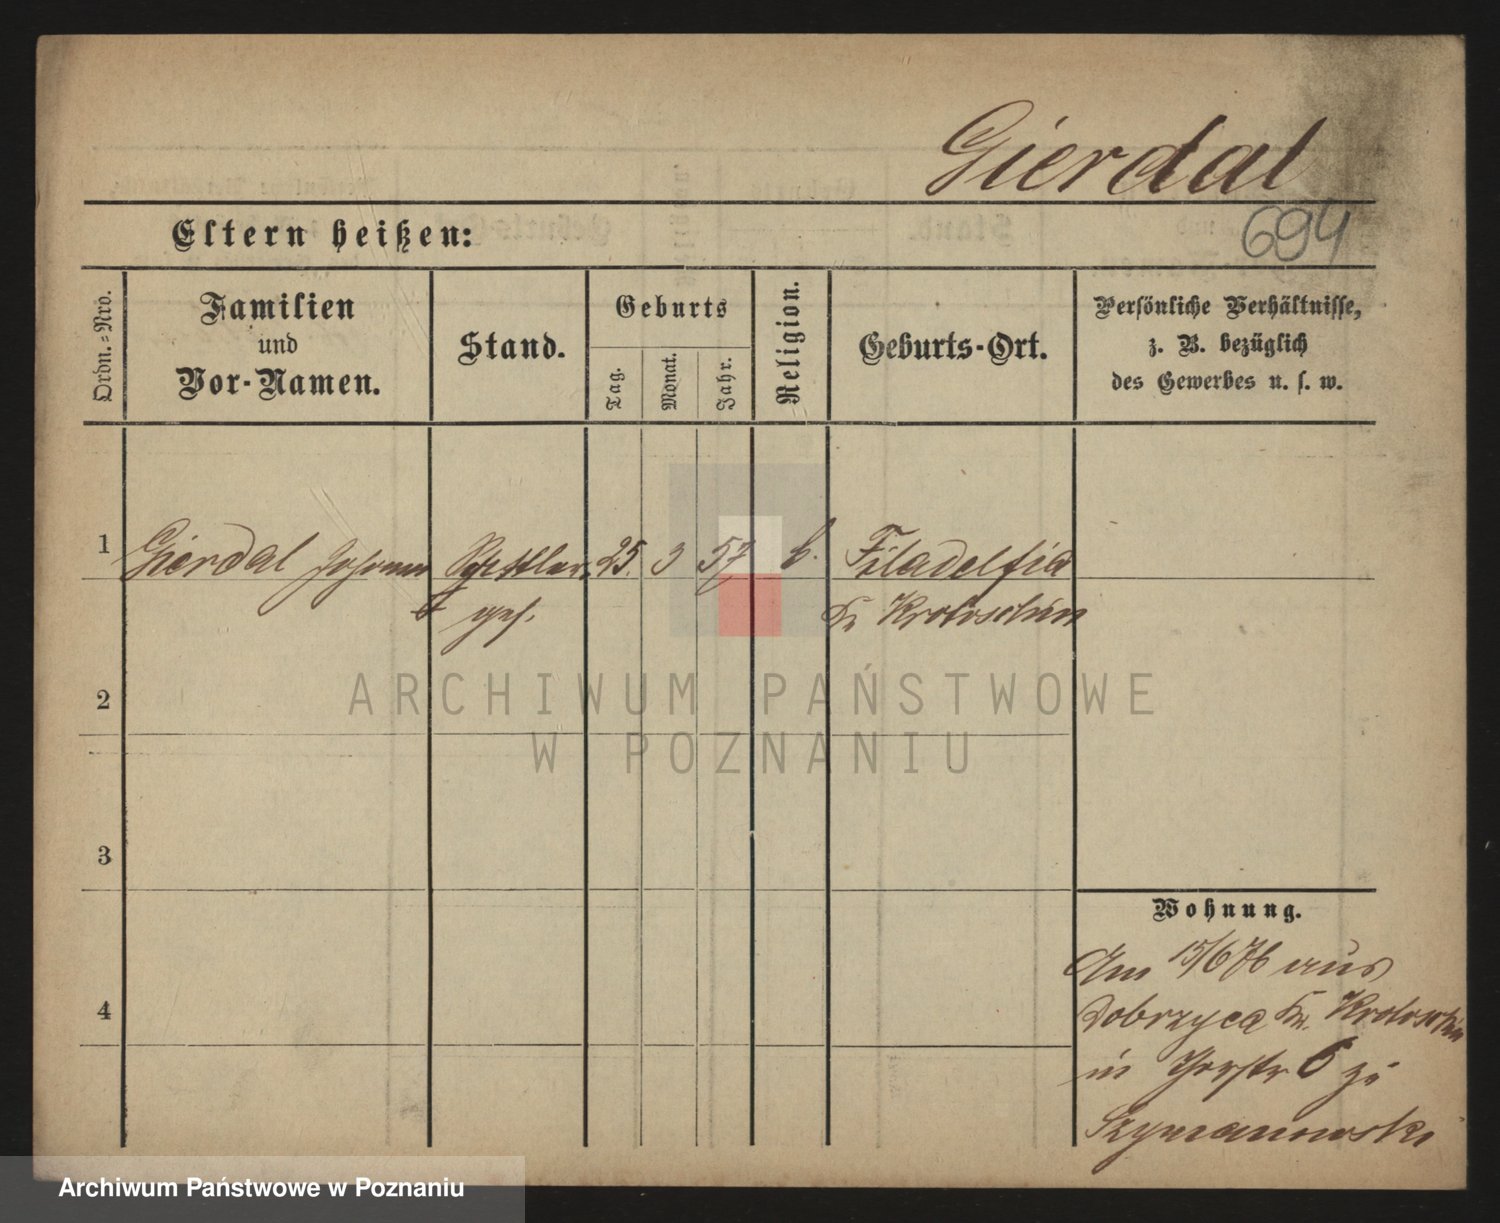 Gierdal
694
Eltern heißen:
Ordn.=Nro.
Familien
und
Vor-Namen.
Stand.
Geburts
Tag.
Monat.
Jahr.
Religion.
Geburts-Ort.
Persönliche Verhältnisse,
z. B. bezüglich
des Gewerbes u. s. w.
1 Gierdal Johann Sattler 25. 3 57 k. Filadelfia
ges. Kr Krotoschin
2
3
4
Wohnung.
Am 15/6 76 aus
Dobrzyca Kr. Krotoschin
in 6 zu
Szymanowski
ARCHIWUM PAŃSTWOWE
W POZNANIU
Archiwum Państwowe w Poznaniu